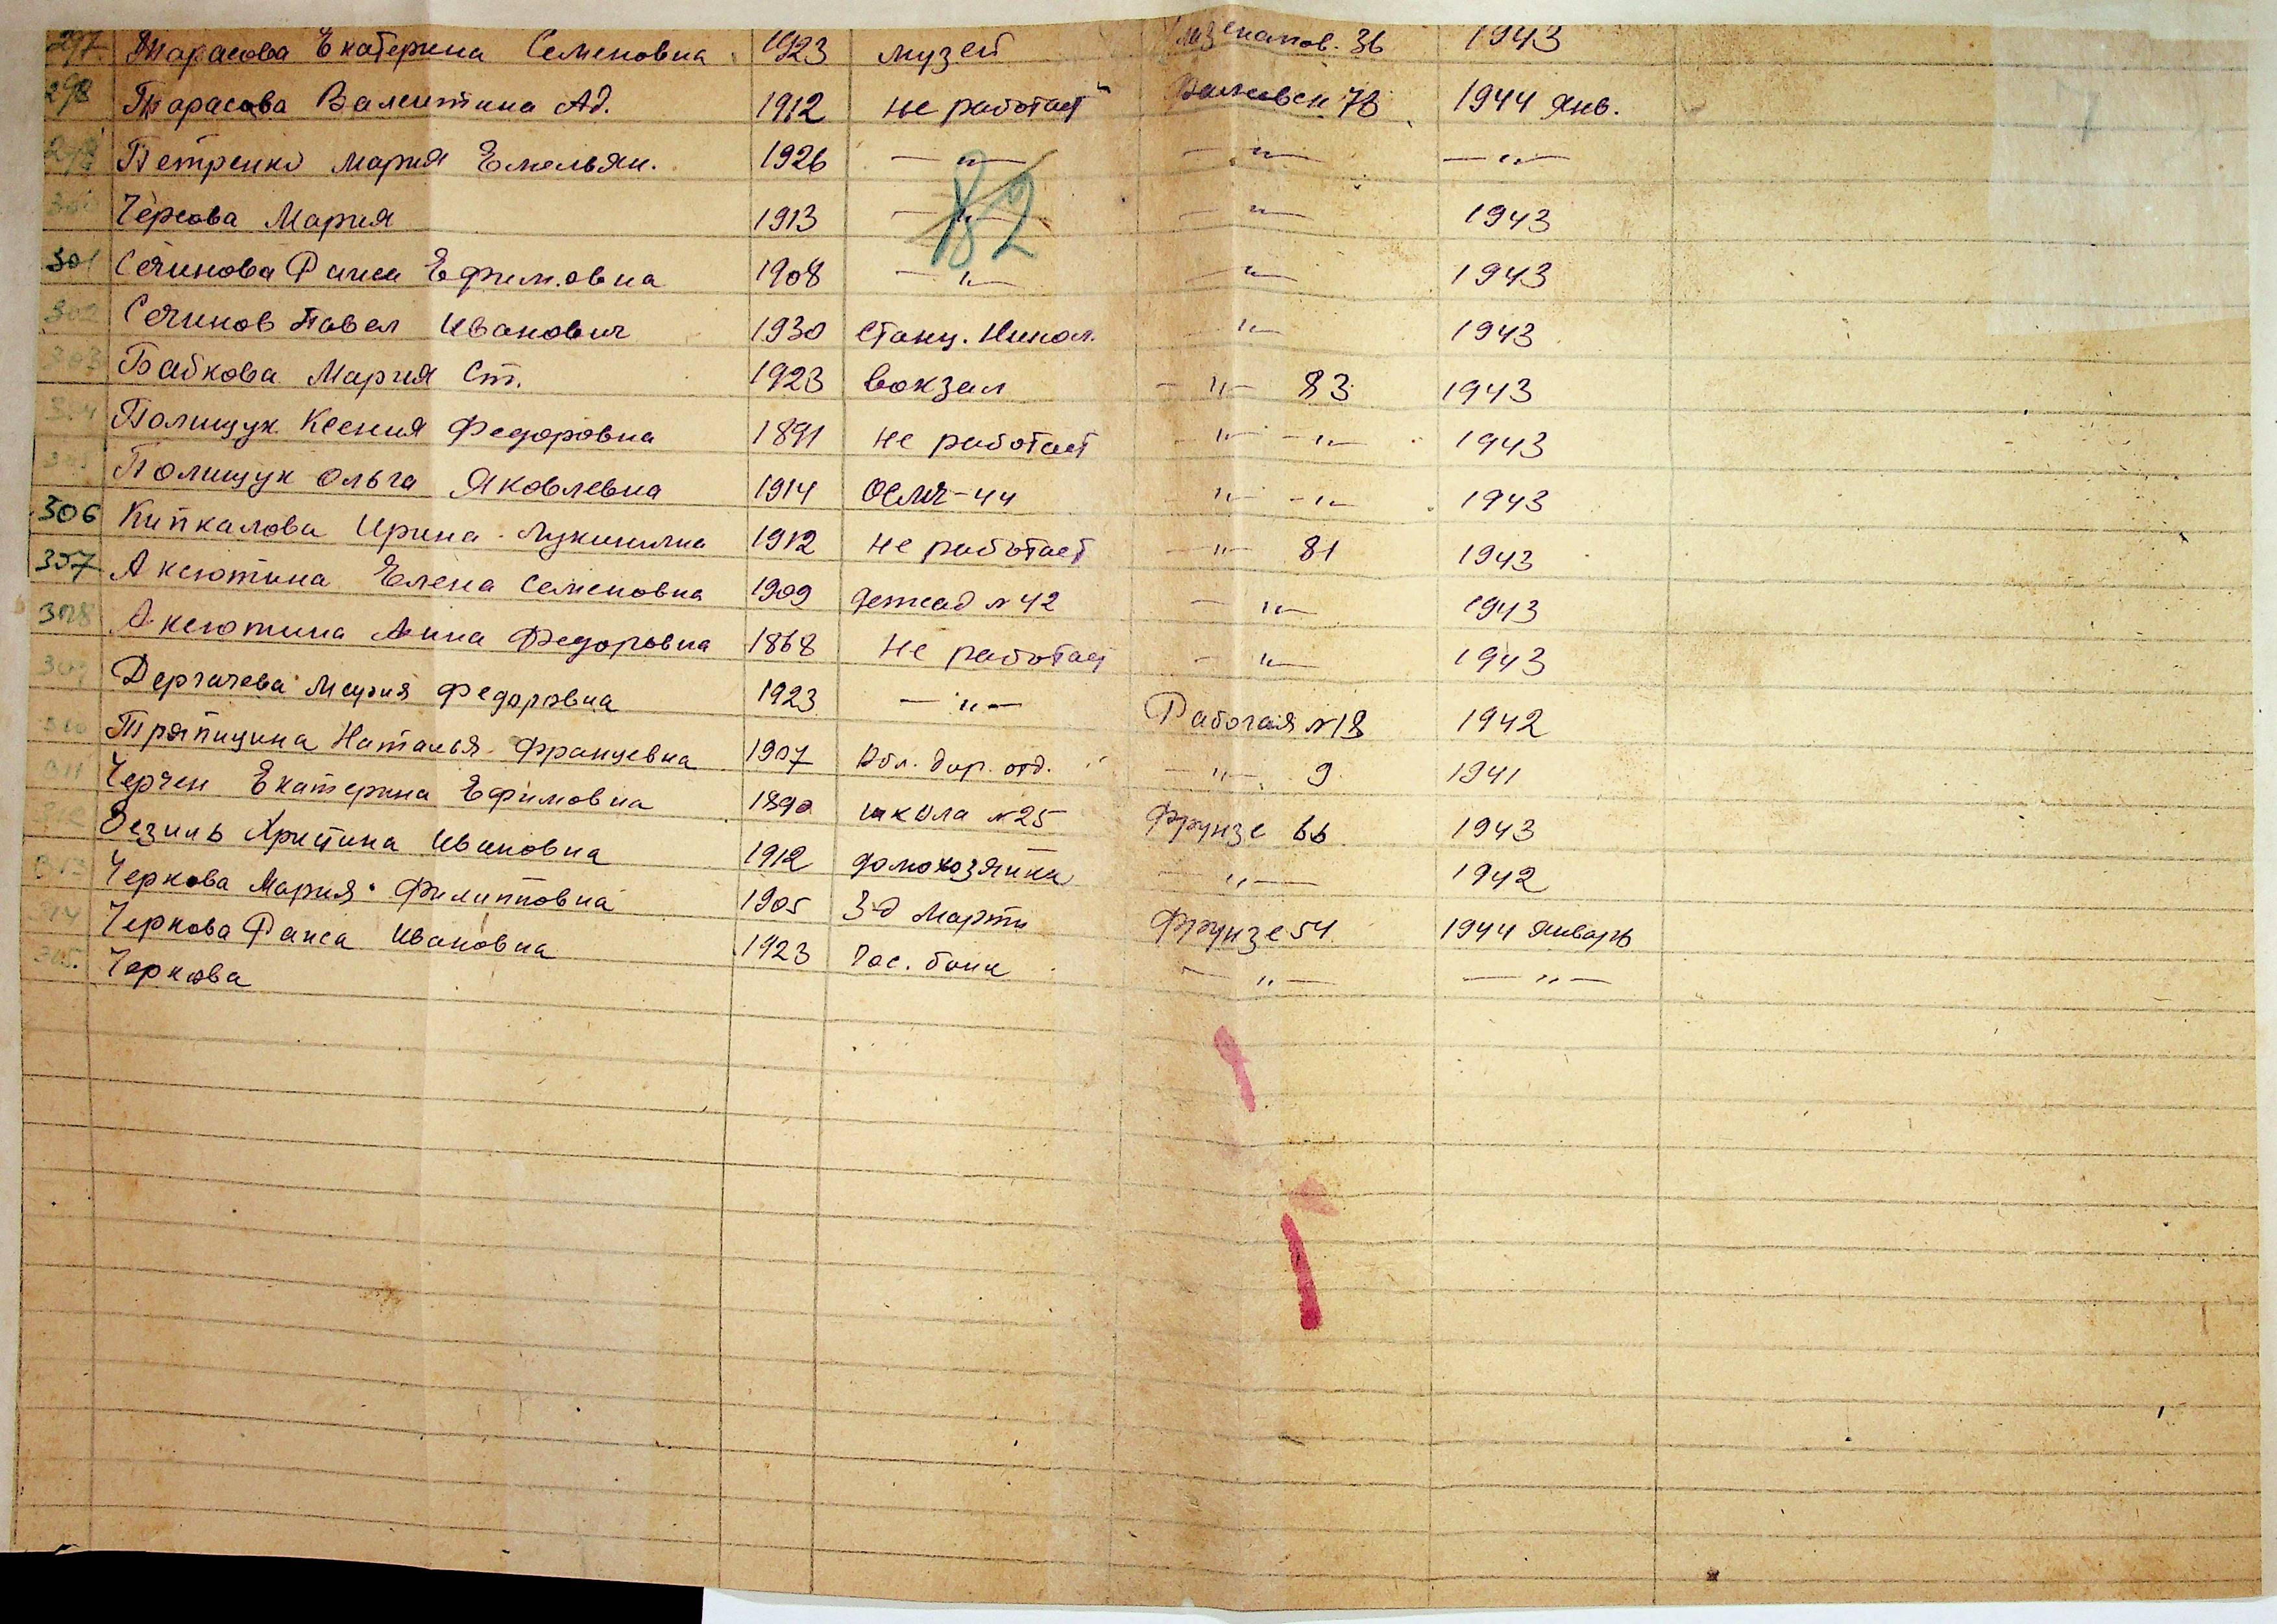 297. Тарасова Екатерина Семеновна 1923 музей 36 1943
298 Тарасова Валентина Ад. 1912 не работает 78 1944 янв.
299 Петренко Мария Емельян. 1926 —"— —"— —"—
300 Черкова Мария 1913 —"— —"— 1943
82
301 Сечинова Раиса Ефимовна 1908 —"— —"— 1943
302 Сечинов Павел Иванович 1930 станц. Никол. —"— 1943
303 Бабкова Мария Ст. 1923 вокзал —"— 83 1943
304 Полищук Ксения Федоровна 1891 не работает —"— —"— 1943
305 Полищук Ольга Яковлевна 1914 ОСМЧ-44 —"— —"— 1943
306 Кипкалова Ирина Лукинична 1912 не работает —"— 81 1943
307 Аксютина Елена Семеновна 1909 детсад №42 —"— 1943
308 Аксютина Анна Федоровна 1868 не работает —"— 1943
309 Дергачева Мария Федоровна 1923 —"— Рабочая №18 1942
310 Тряпицина Наталья Францевна 1907 Обл. дор. отд. —"— 9 1941
311 Черчен Екатерина Ефимовна 1890 школа №25 Фрунзе 66 1943
312 Христина Ивановна 1912 домохозяйка —"— 1942
313 Черкова Мария Филипповна 1905 З-д Марти Фрунзе 54 1944 январь
314 Черкова Раиса Ивановна 1923 Гос. банк —"— —"—
315. Черкова